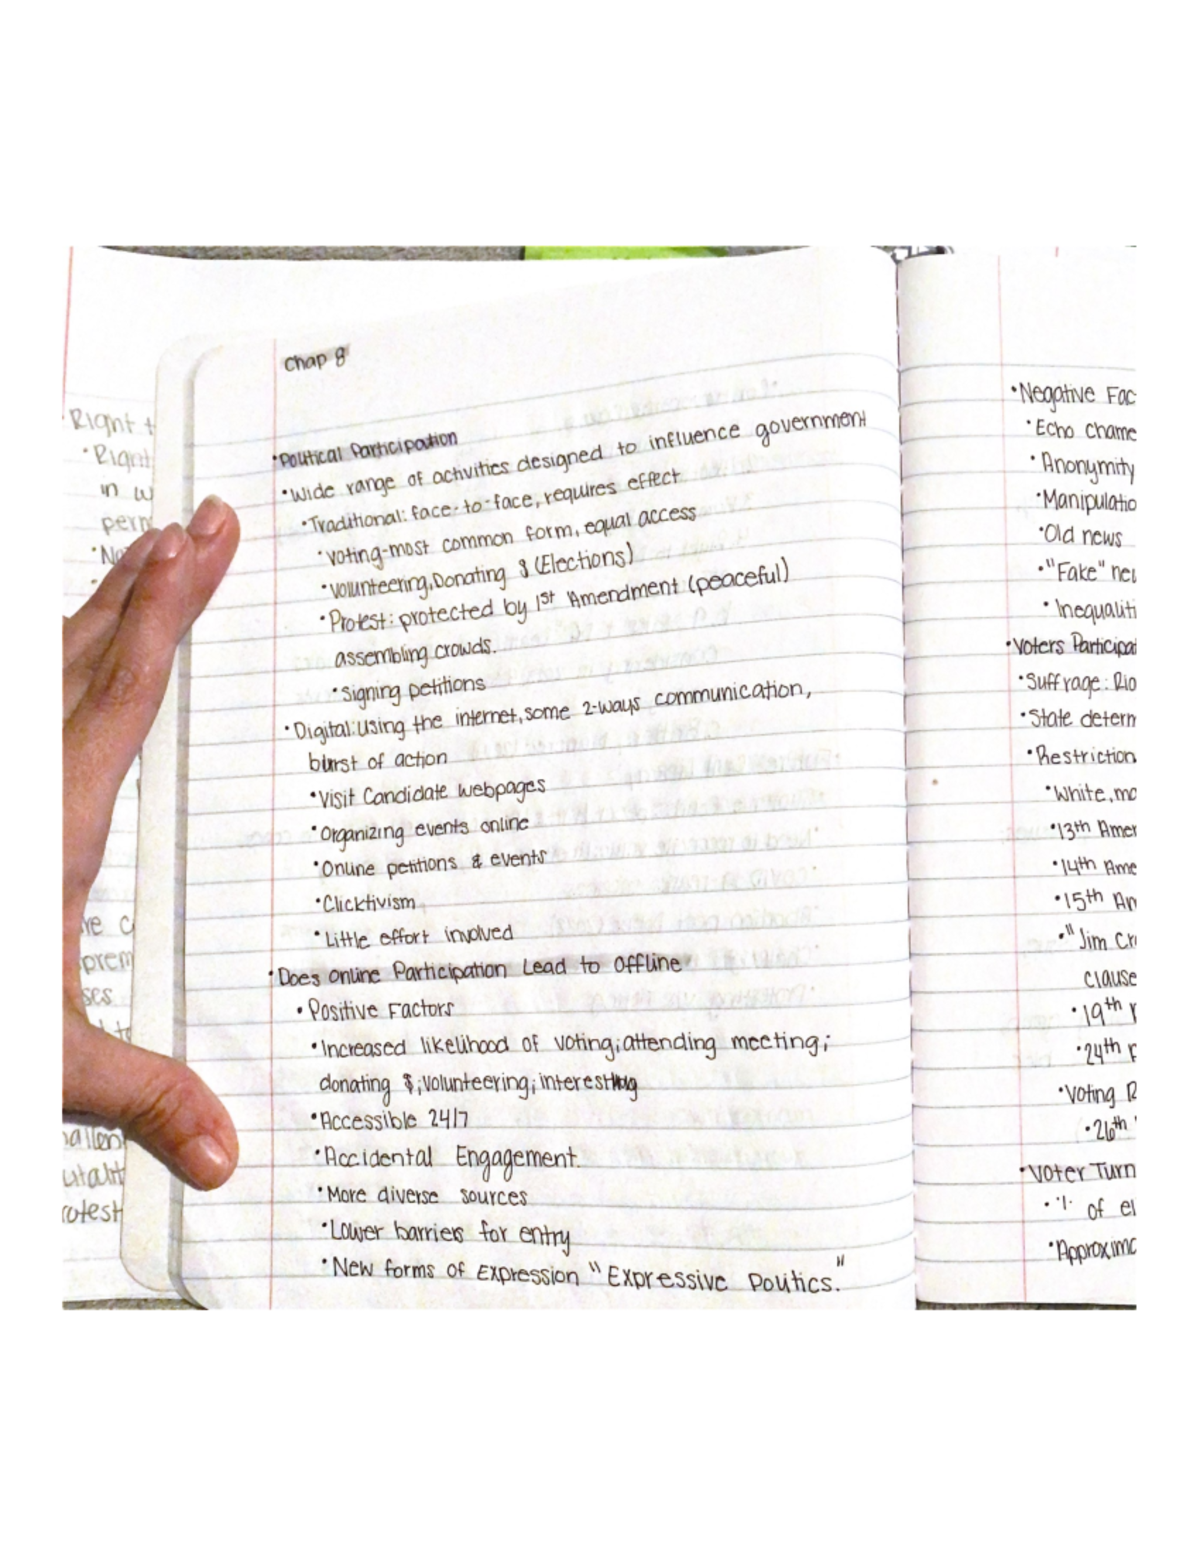 Chap 8
•Political Participation
•Wide range of activities designed to influence government
•Traditional: face-to-face, requires effect
•Voting-most common form, equal access
•Volunteering, Donating $ (Elections)
•Protest: protected by 1st Amendment (peaceful)
assembling crowds.
•Signing petitions
•Digital: Using the internet, some 2-ways communication,
burst of action
•Visit Candidate webpages
•Organizing events online
•Online petitions & events
•Clicktivism
•Little effort involved
•Does online Participation Lead to Offline
•Positive Factors
•Increased likelihood of voting; attending meeting;
donating $; volunteering; interest
•Accessible 24/7
•Accidental Engagement.
•More diverse sources
•Lower barriers for entry
•New forms of Expression "Expressive Politics."
•Negative Fac
•Echo Chame
•Anonymity
•Manipulatio
•Old news
•"Fake" ne
•Inequaliti
•Voters Participat
•Suffrage: Rig
•State determ
•Restriction
•White, ma
•13th Amer
•14th Ame
•15th Am
•"Jim Cr
clause
•19th
•24th
•Voting R
•26th
•Voter Turn
•% of el
•Approxima
•Right t
•Right
in w
perm
•No
re c
prem
ses
allen
otest